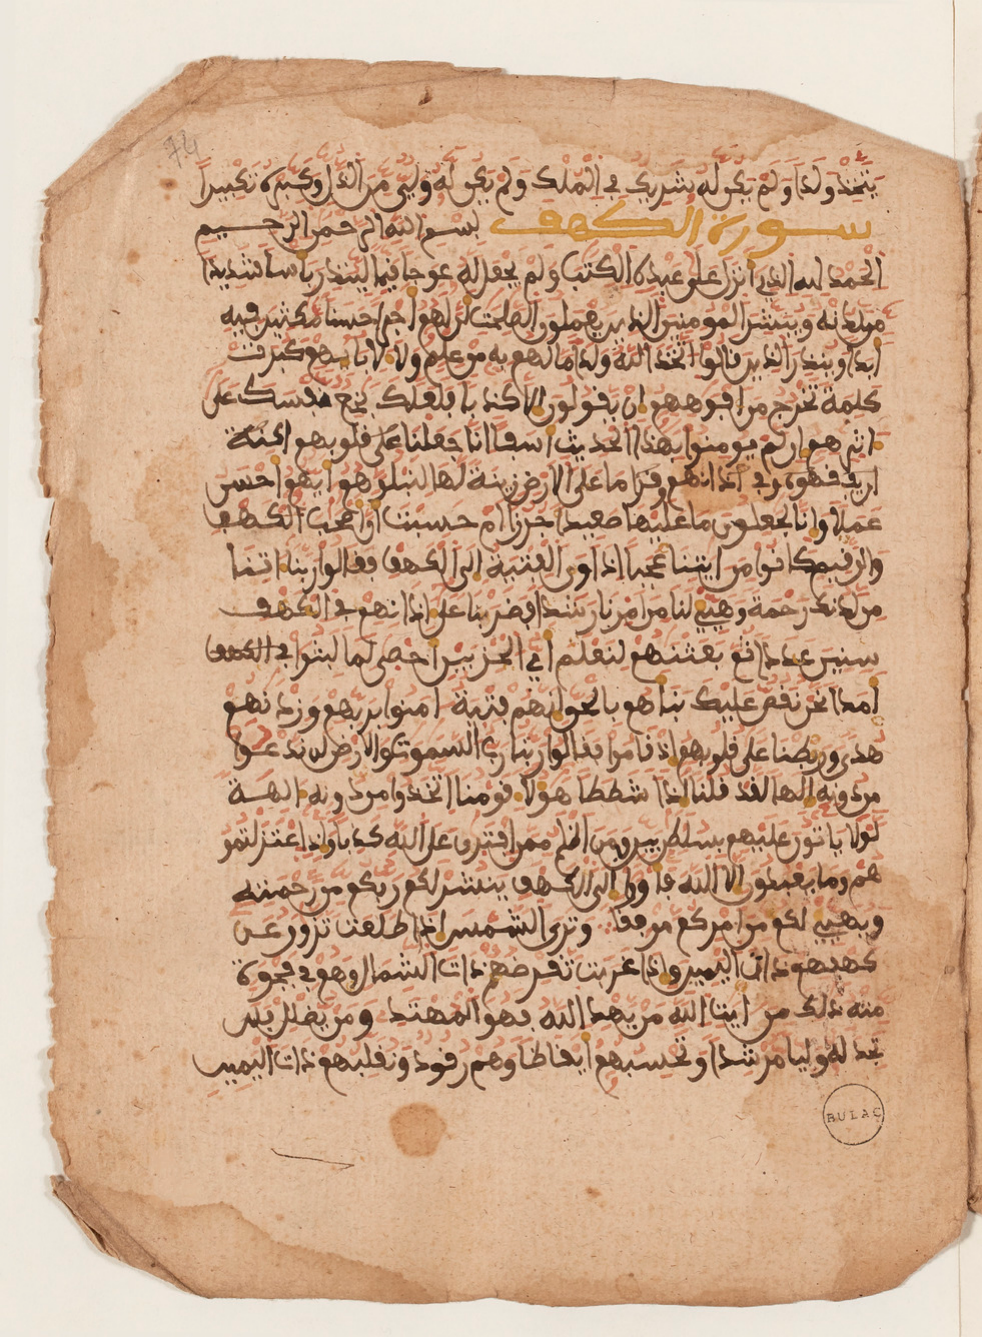 74
يتخذ ولدا ولم يكن له شريك في الملك ولم يكن له ولي من الذل وكبره تكبيرا
سورة الكهف بسم الله الرحمن الرحيم
الحمد لله الذي انزل على عبده الكتب ولم يجعل له عوجا قيما لينذر باسا شديدا
من لدنه ويبشر المومنين الذين يعملون الصلحت ان لهم اجرا حسنا مكثين فيه
ابدا وينذر الذين قالوا اتخذ الله ولدا ما لهم به من علم ولا لابايهم كبرت
كلمة تخرج من افوههم ان يقولون الا كذبا فلعلك بخع نفسك على
اثرهم ان لم يومنوا بهذا الحديث اسفا انا جعلنا على قلوبهم اكنة
ان يفقهوه وفي اذانهم وقرا ما على الارض زينة لها لنبلوهم ايهم احسن
عملا وانا لجعلون ما عليها صعيدا جرزا ام حسبت ان اصحب الكهف
والرقيم كانوا من ايتنا عجبا اذ اوى الفتية الى الكهف فقالوا ربنا اتنا
من لدنك رحمة وهيئ لنا من امرنا رشدا فضربنا على اذانهم في الكهف
سنين عددا ثم بعثنهم لنعلم اي الحزبين احصى لما لبثوا في الكهف
امدا نحن نقص عليك نباهم بالحق انهم فتية امنوا بربهم وزدنهم
هدى وربطنا على قلوبهم اذ قاموا فقالوا ربنا رب السموت والارض لن ندعوا
من دونه الها لقد قلنا اذا شططا هولا قومنا اتخذوا من دونه الهة
لولا ياتون عليهم بسلطن بين فمن اظلم ممن افترى على الله كذبا واذ اعتزلتمو
هم وما يعبدون الا الله فاوا الى الكهف ينشر لكم ربكم من رحمته
ويهيئ لكم من امركم مرفقا وترى الشمس اذا طلعت تزور عن
كهفهم ذات اليمين واذا غربت تقرضهم ذات الشمال وهم في فجوة
منه ذلك من ايت الله من يهد الله فهو المهتد ومن يضلل فلن
تجد له وليا مرشدا وتحسبهم ايقاظا وهم رقود ونقلبهم ذات اليمين
BULAC